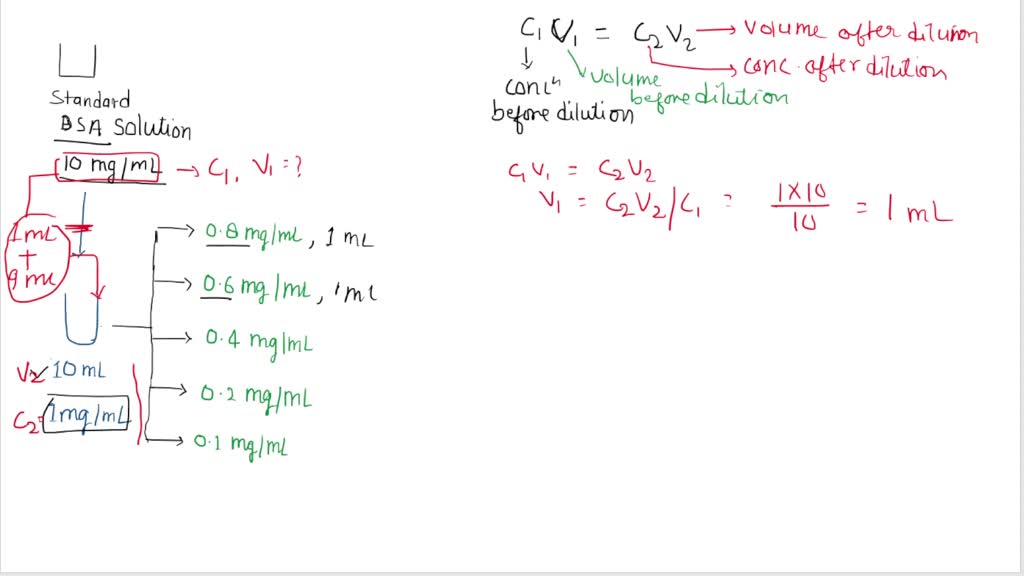 Standard
BSA Solution
10 mg/mL → C1, V1 = ?
1 mL
+
9 mL
V2 10 mL
C2 = 1mg/mL
→ 0.8 mg/mL, 1 mL
→ 0.6 mg/mL, 1 mL
→ 0.4 mg/mL
→ 0.2 mg/mL
→ 0.1 mg/mL
C1 V1 = C2 V2 → volume after dilution
→ conc. after dilution
concⁿ
before dilution
volume
before dilution
C1V1 = C2V2
V1 = C2V2/C1 = 1×10/10 = 1 mL